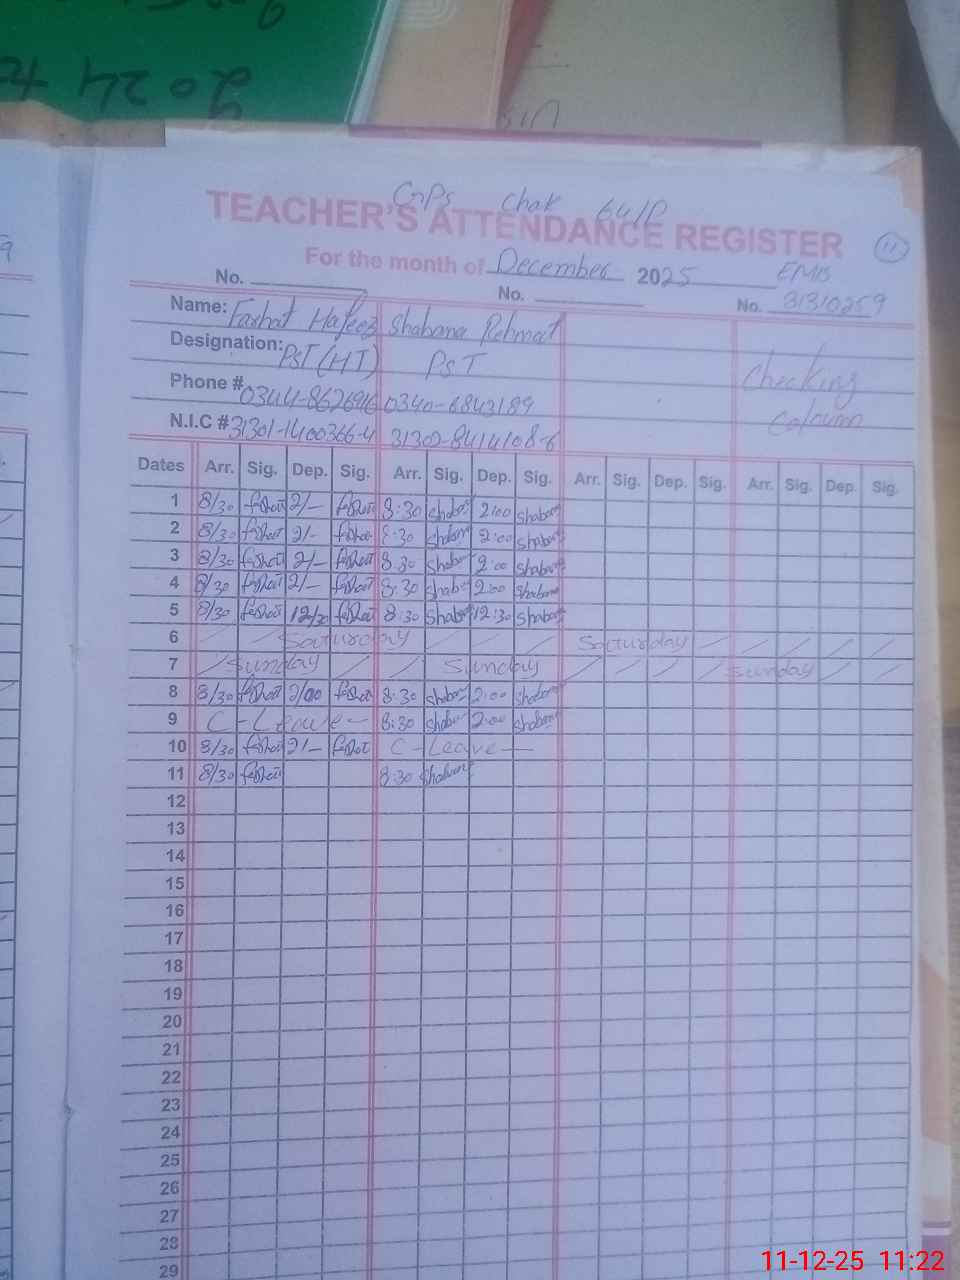 2024
GGPS Chak 64/P
TEACHER'S ATTENDANCE REGISTER
11
For the month of December 2025
EMIS
No. No. No. 31310259
Name: Farhat Hafeez Shabana Rehmat
Designation: PST (HT) PST
Checking
Phone # 0344-8626916 0340-8843189
Coloumn
N.I.C # 31301-1400366-4 31302-8414108-6
Dates Arr. Sig. Dep. Sig. Arr. Sig. Dep. Sig. Arr. Sig. Dep. Sig. Arr. Sig. Dep. Sig.
1 8/30 farhat 2/- farhat 8:30 shabana 2:00 shabana
2 8/30 farhat 2/- farhat 8:30 shabana 2:00 shabana
3 8/30 farhat 2/- farhat 8:30 shabana 2:00 shabana
4 8/30 farhat 2/- farhat 8:30 shabana 2:00 shabana
5 8/30 farhat 12/30 farhat 8:30 shabana 12:30 shabana
6 Saturday Saturday
7 Sunday Sunday Sunday
8 8/30 farhat 2/00 farhat 8:30 shabana 2:00 shabana
9 C-Leave- 8:30 shabana 2:00 shabana
10 8/30 farhat 2/- farhat C-Leave-
11 8/30 farhat 8:30 shabana
12
13
14
15
16
17
18
19
20
21
22
23
24
25
26
27
28
29
11-12-25 11:22